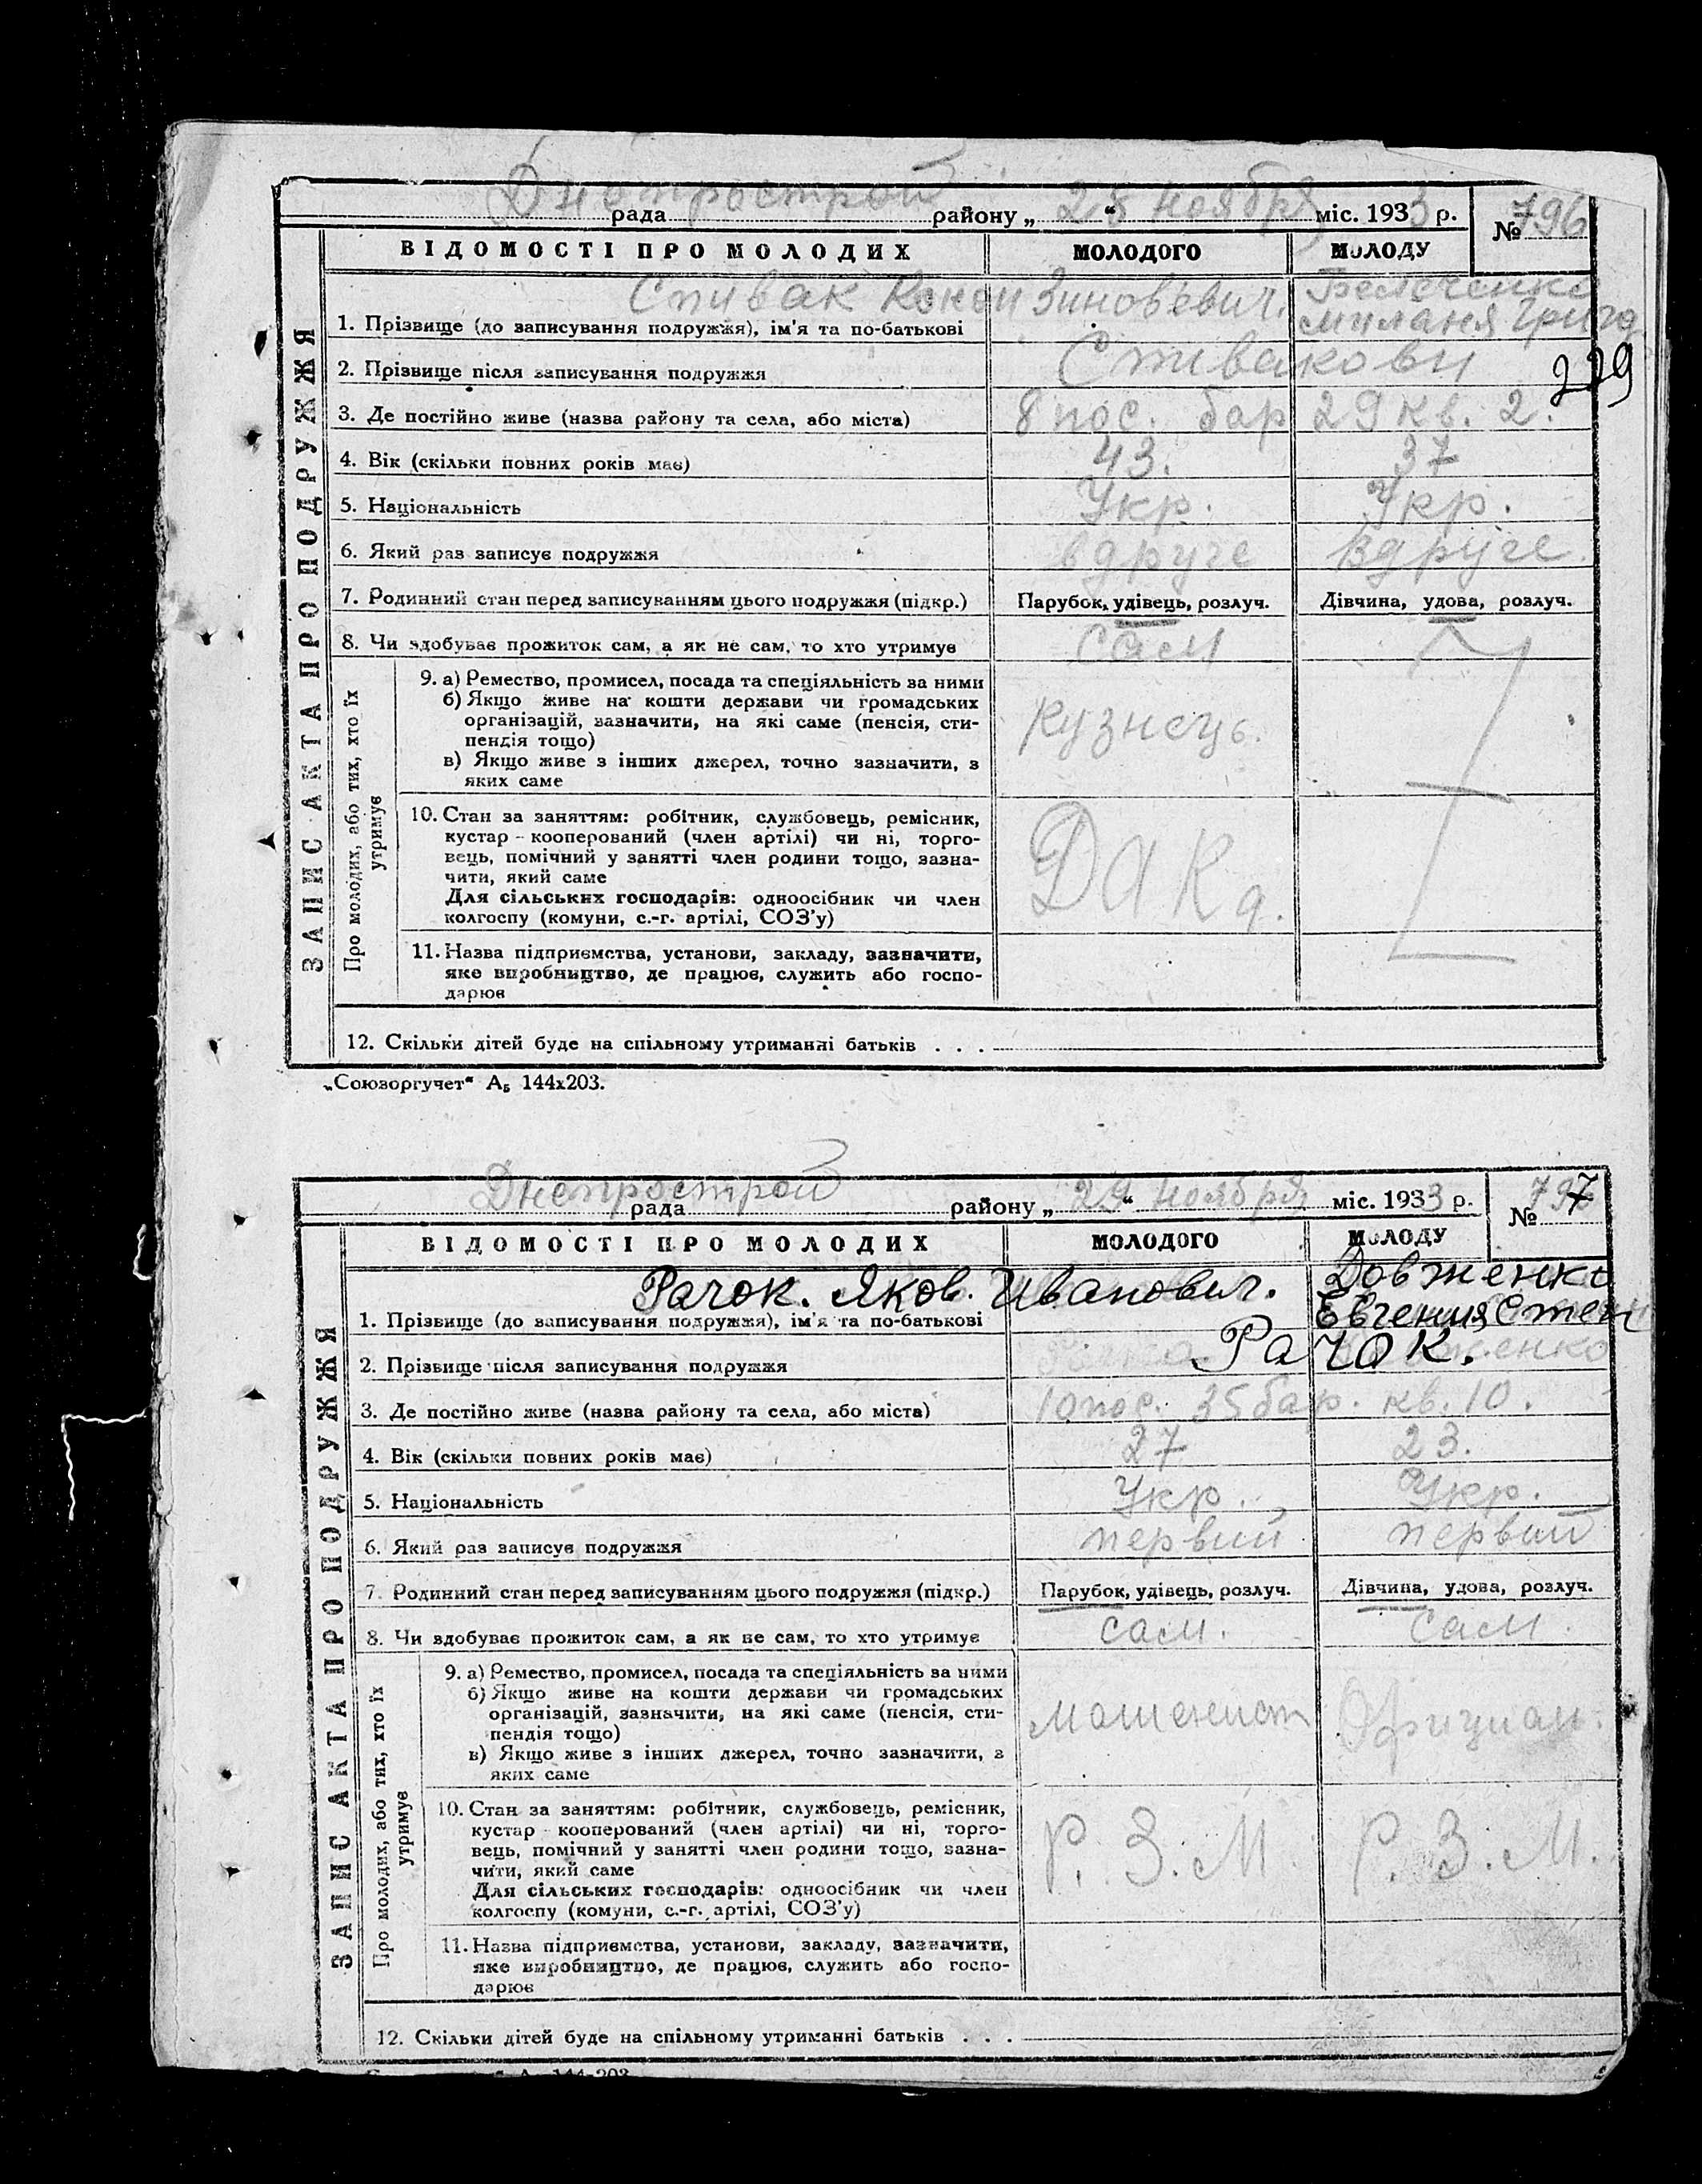 Днепрострой
рада района „ 28 “ ноября міс. 1933 р. № 796
ВІДОМОСТІ ПРО МОЛОДИХ МОЛОДОГО МОЛОДУ
ЗАПИС АКТА ПРО ПОДРУЖЖЯ
1. Прізвище (до записування подружжя), ім'я та по-батькові Спивак Конон Зиновьевич. Белеченко
Миланя Григо
2. Прізвище після записування подружжя Спивакови
229
3. Де постійно живе (назва району та села, або міста) 8 пос. бар 29 кв. 2.
4. Вік (скільки повних років має) 43. 37
5. Національність Укр. Укр.
6. Який раз записує подружжя вдруге вдруге
7. Родинний стан перед записуванням цього подружжя (підкр.) Парубок, удівець, розлуч. Дівчина, удова, розлуч.
8. Чи здобуває прожиток сам, а як не сам, то хто утримує сам
Про молодих, або тих, хто їх
утримує
9. а) Ремество, промисел, посада та спеціяльність за ними
б) Якщо живе на кошти держави чи громадських
організацій, зазначити, на які саме (пенсія, сти-
пендія тощо)
в) Якщо живе з інших джерел, точно зазначити, з
яких саме
кузнець.
10. Стан за заняттям: робітник, службовець, ремісник,
кустар - кооперований (член артілі) чи ні, торго-
вець, помічний у занятті член родини тощо, зазна-
чити, який саме
Для сільських господарів: одноосібник чи член
колгоспу (комуни, с.-г. артілі, СОЗ'у)
11. Назва підприємства, установи, закладу, зазначити,
яке виробництво, де працює, служить або госпо-
дарює
12. Скільки дітей буде на спільному утриманні батьків . . .
„Союзоргучет“ А₅ 144х203.
Днепрострой
рада району „ 29 “ ноября міс. 1933 р. № 797
ВІДОМОСТІ ПРО МОЛОДИХ МОЛОДОГО МОЛОДУ
ЗАПИС АКТА ПРО ПОДРУЖЖЯ
1. Прізвище (до записування подружжя), ім'я та по-батькові Рачок. Яков. Иванович. Довженко
Евгения Степ
2. Прізвище після записування подружжя Рачок.
3. Де постійно живе (назва району та села, або міста) 10 пос. 35 бар. кв. 10.
4. Вік (скільки повних років має) 27 23.
5. Національність Укр. Укр.
6. Який раз записує подружжя первий первий
7. Родинний стан перед записуванням цього подружжя (підкр.) Парубок, удівець, розлуч. Дівчина, удова, розлуч.
8. Чи здобуває прожиток сам, а як не сам, то хто утримує сам. сам.
Про молодих, або тих, хто їх
утримує
9. а) Ремество, промисел, посада та спеціяльність за ними
б) Якщо живе на кошти держави чи громадських
організацій, зазначити, на які саме (пенсія, сти-
пендія тощо)
в) Якщо живе з інших джерел, точно зазначити, з
яких саме
машенист Официан.
10. Стан за заняттям: робітник, службовець, ремісник,
кустар - кооперований (член артілі) чи ні, торго-
вець, помічний у занятті член родини тощо, зазна-
чити, який саме
Для сільських господарів: одноосібник чи член
колгоспу (комуни, с.-г. артілі, СОЗ'у)
Р. З. М. Р. З. М.
11. Назва підприємства, установи, закладу, зазначити,
яке виробництво, де працює, служить або госпо-
дарює
12. Скільки дітей буде на спільному утриманні батьків . . .